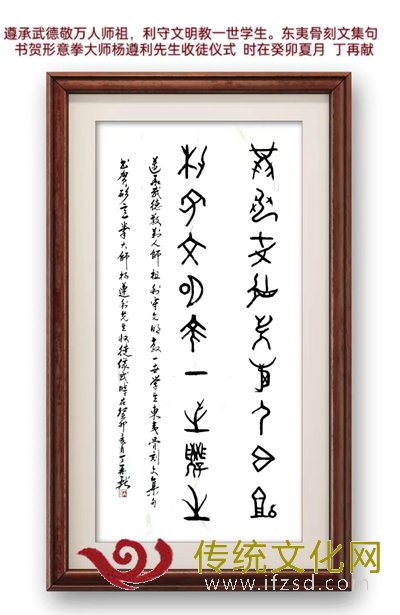 遵承武德敬万人师祖，利守文明教一世学生。东夷骨刻文集句
书贺形意拳大师杨遵利先生收徒仪式 时在癸卯夏月 丁再献
遵承武德敬万人师祖
利守文明教一世学生
遵承武德敬萬人師祖利守文明教一世学生東夷骨刻文集句
书贺形意拳大師杨遵利先生收徒儀式時在癸卯夏月丁再献
传统文化网
www.ifzsd.com